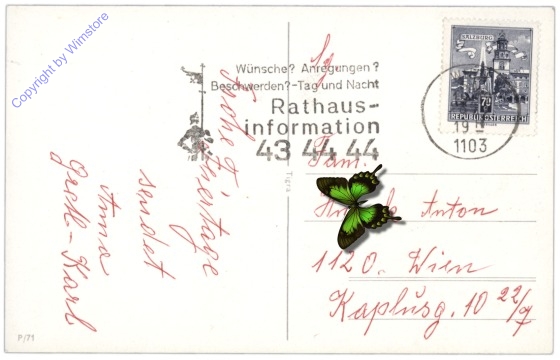 Copyright by Wimstore
Wünsche? Anregungen?
Beschwerden?-Tag und Nacht
Rathaus-
information
43 44 44
SALZBURG
70
REPUBLIK ÖSTERREICH
19
1103
Tigra
Frohe
Feiertage
sendet
Anna
Karl
Fam.
Anton
1120. Wien
Kaplusg. 10 22/9
P/71